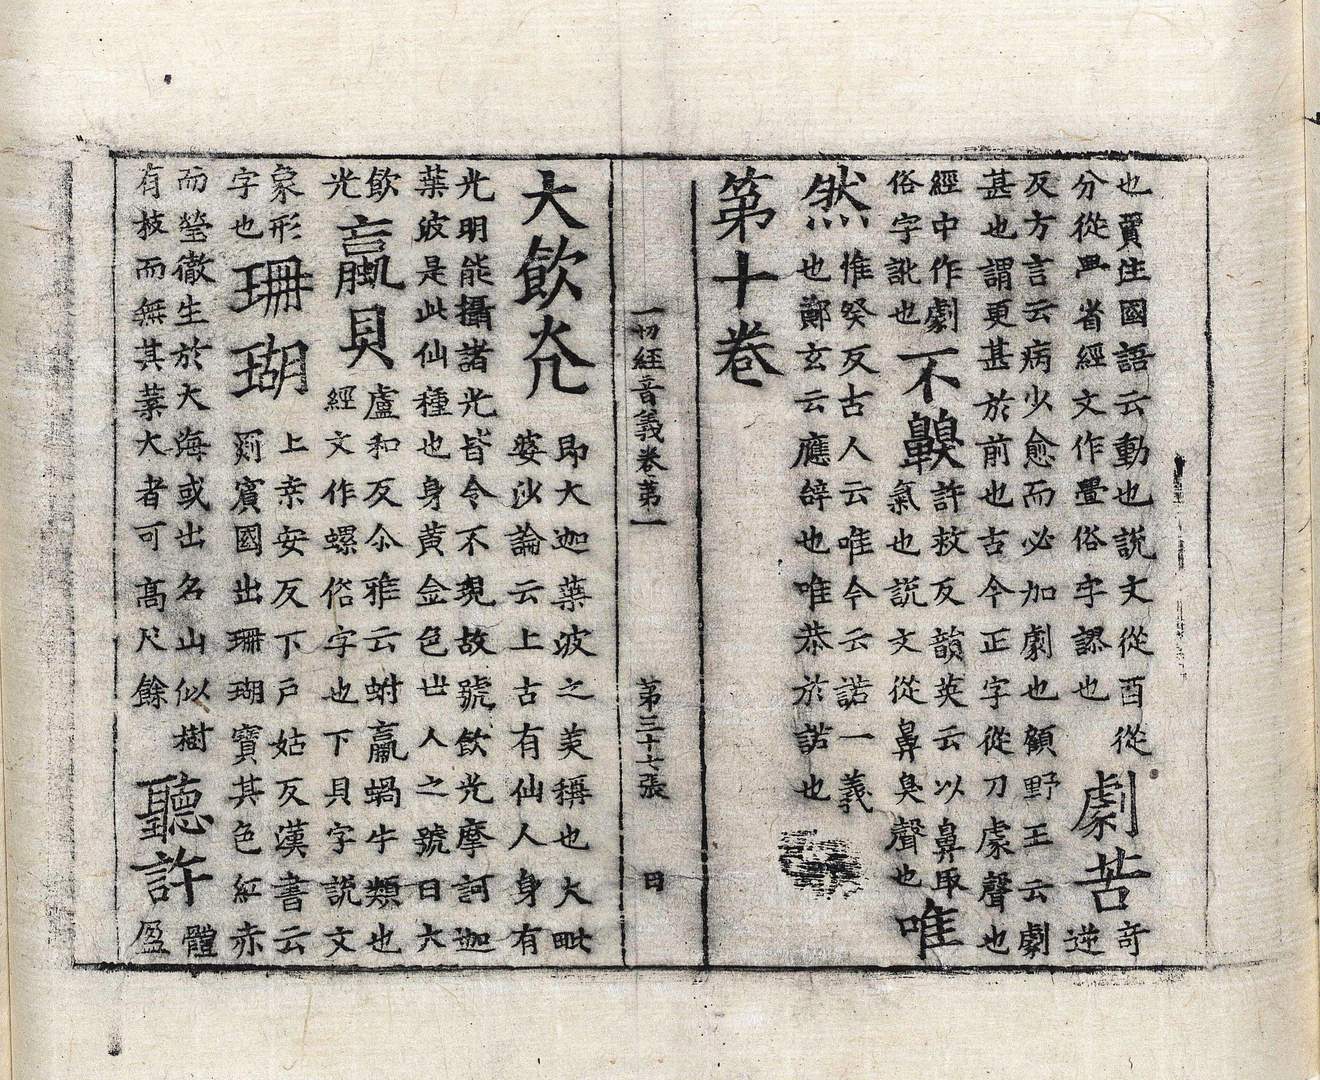 也賈注國語云動也說文從酉從
分從血省經文作疊俗字謬也
劇苦
奇
逆
反方言云病少愈而必加劇也顧野王云劇
甚也謂更甚於前也古今正字從刀豦聲也
經中作劇
俗字訛也
不齅
許救反韻英云以鼻取
氣也說文從鼻臭聲也
唯
然
惟癸反古人云唯今云諾一義
也鄭玄云應辝也唯恭於諾也
第十卷
一切經音義卷第一 第三十七張 日
大飲光
即大迦葉波之美稱也大毗
婆沙論云上古有仙人身有
光明能攝諸光皆令不現故號飲光摩訶迦
葉波是此仙種也身黃金色世人之號曰大
飲
光
蠃貝
盧和反尒雅云蚹蠃蝸牛類也
經文作螺俗字也下貝字說文
象形
字也
珊瑚
上桒安反下戶姑反漢書云
罽賓國出珊瑚寶其色紅赤
而瑩徹生於大海或出名山似樹
有枝而無其葉大者可高尺餘
聽許
體
盈